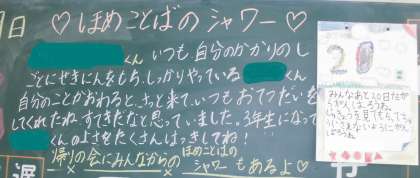 日 ♡ ほめことばのシャワー ♡
くん いつも自分のかかりのし
ごとにせきにんをもち、しっかりやっている くん
自分のことがおわると、さっと来て、いつもおてつだいを
してくれたね。すてきだなと思っていました。3年生になって
くんのよさをたくさんはっきしてね!
帰りの会にみんなからのほめことばの
シャワーもあるよ♡
20
みんなあと20日だか